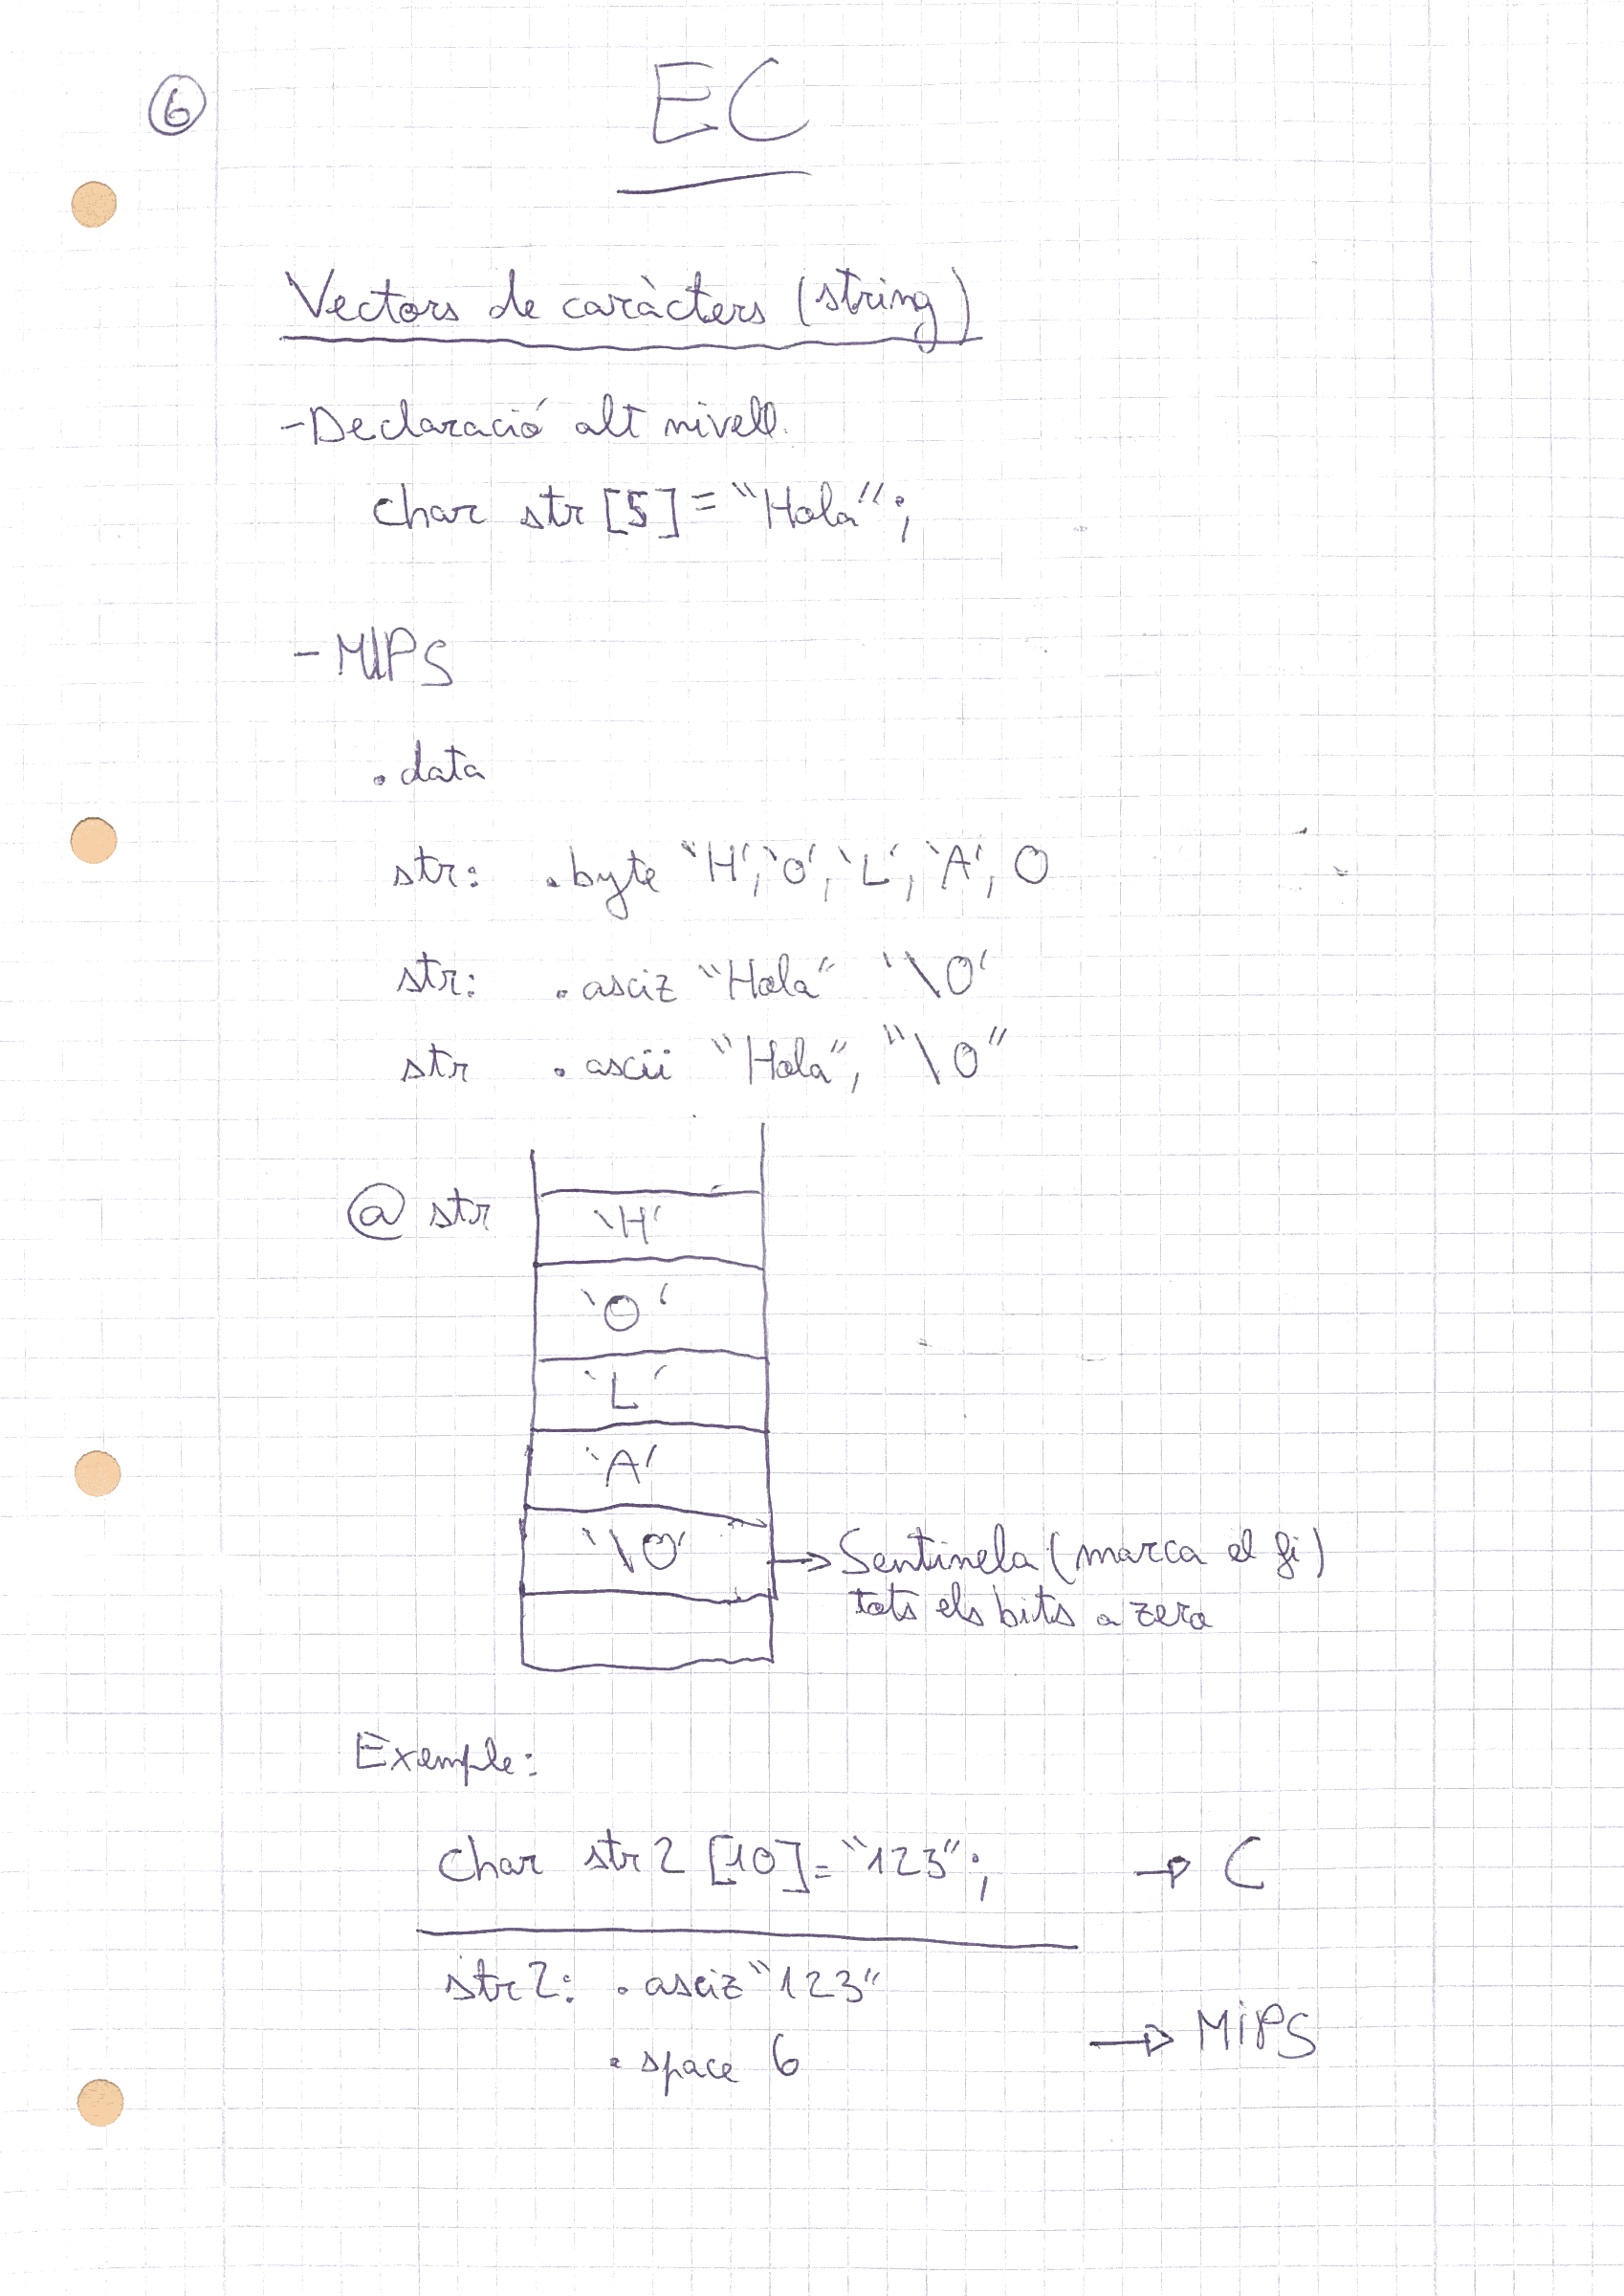 6
EC
Vectors de caràcters (string)
-Declaració alt nivell.
char str [5] = "Hola";
- MIPS
.data
str: .byte 'H', 'O', 'L', 'A', 0
str: .asciz "Hola" '\0'
str .ascii "Hola", "\0"
@ str
'H'
'O'
'L'
'A'
'\0' → Sentinela (marca el fi)
tots els bits a zero
Exemple:
char str2 [10] = "123"; → C
str2: .asciz "123"
.space 6 → MiPS